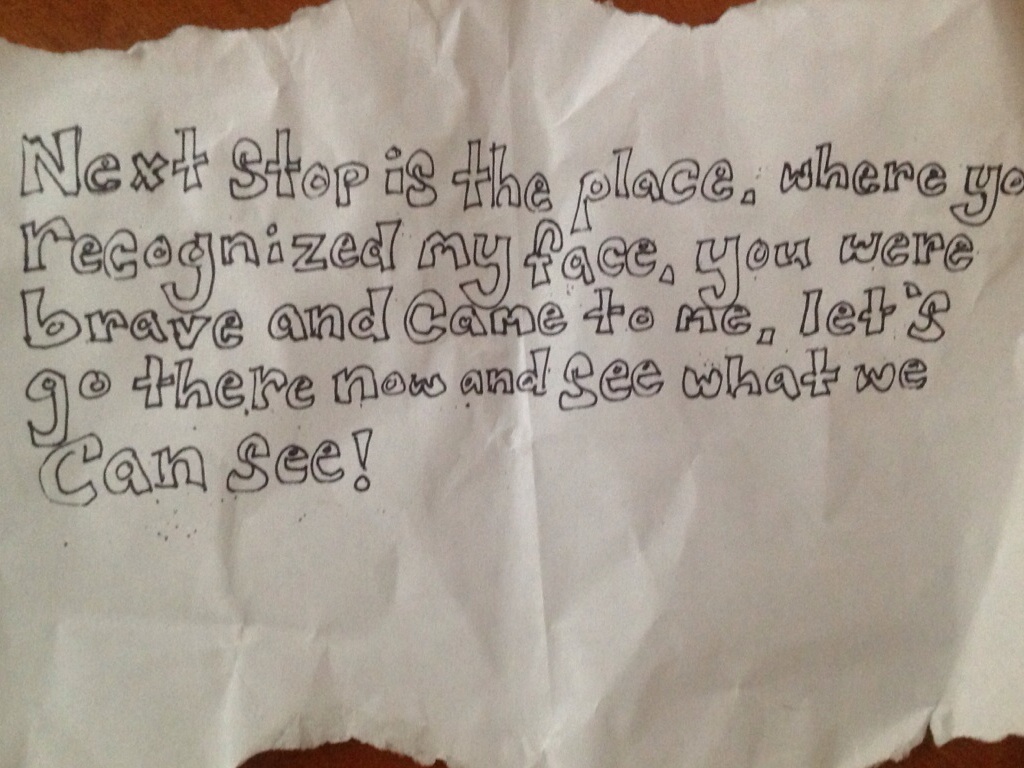 Next Stop is the place, where yo
recognized my face, you were
brave and came to me, let's
go there now and see what we
Can see!